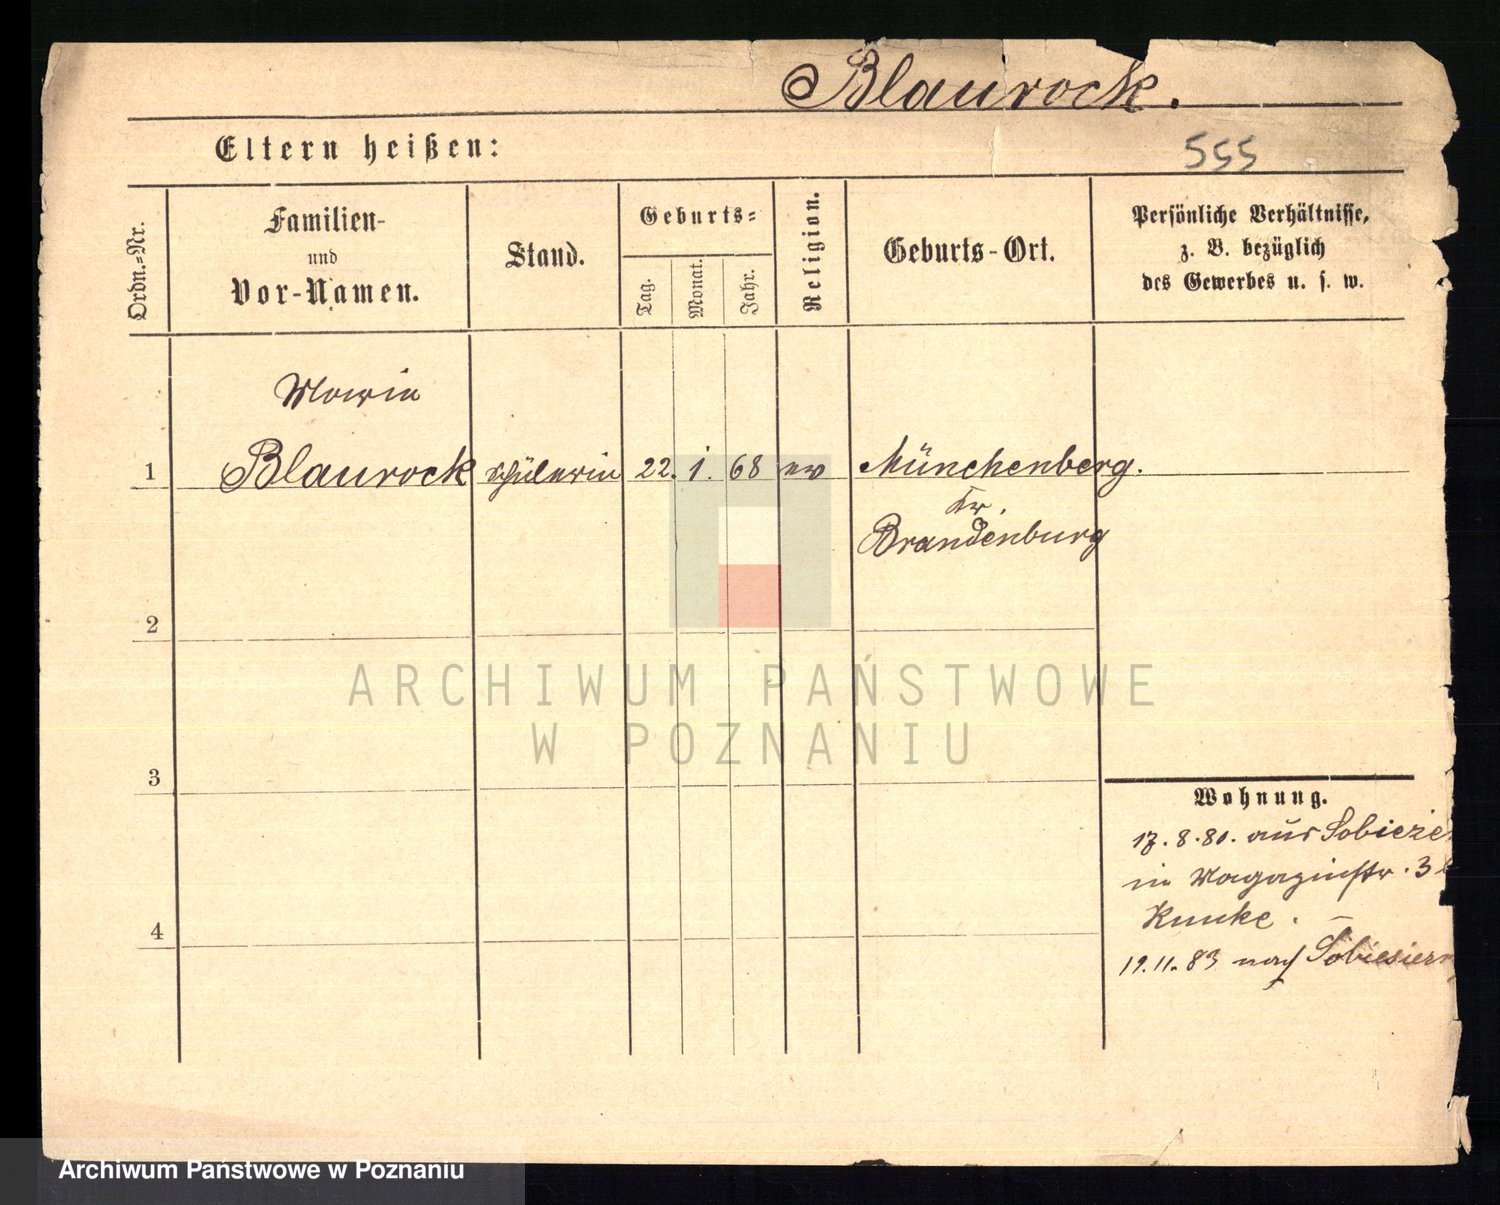 Blaurock.
Eltern heißen:
555
Ordn.-Nr.
Familien-
und
Vor-Namen.
Stand.
Geburts-
Tag.
Monat.
Jahr.
Religion.
Geburts-Ort.
Persönliche Verhältnisse,
z. B. bezüglich
des Gewerbes u. s. w.
Marie
1 Blaurock Schülerin 22. 1. 68 ev Münchenberg.
Kr.
Brandenburg
2
3
4
Wohnung.
17. 8. 80. aus
in Magazinstr. 3
19. 11. 83 nach
ARCHIWUM PAŃSTWOWE
W POZNANIU
Archiwum Państwowe w Poznaniu